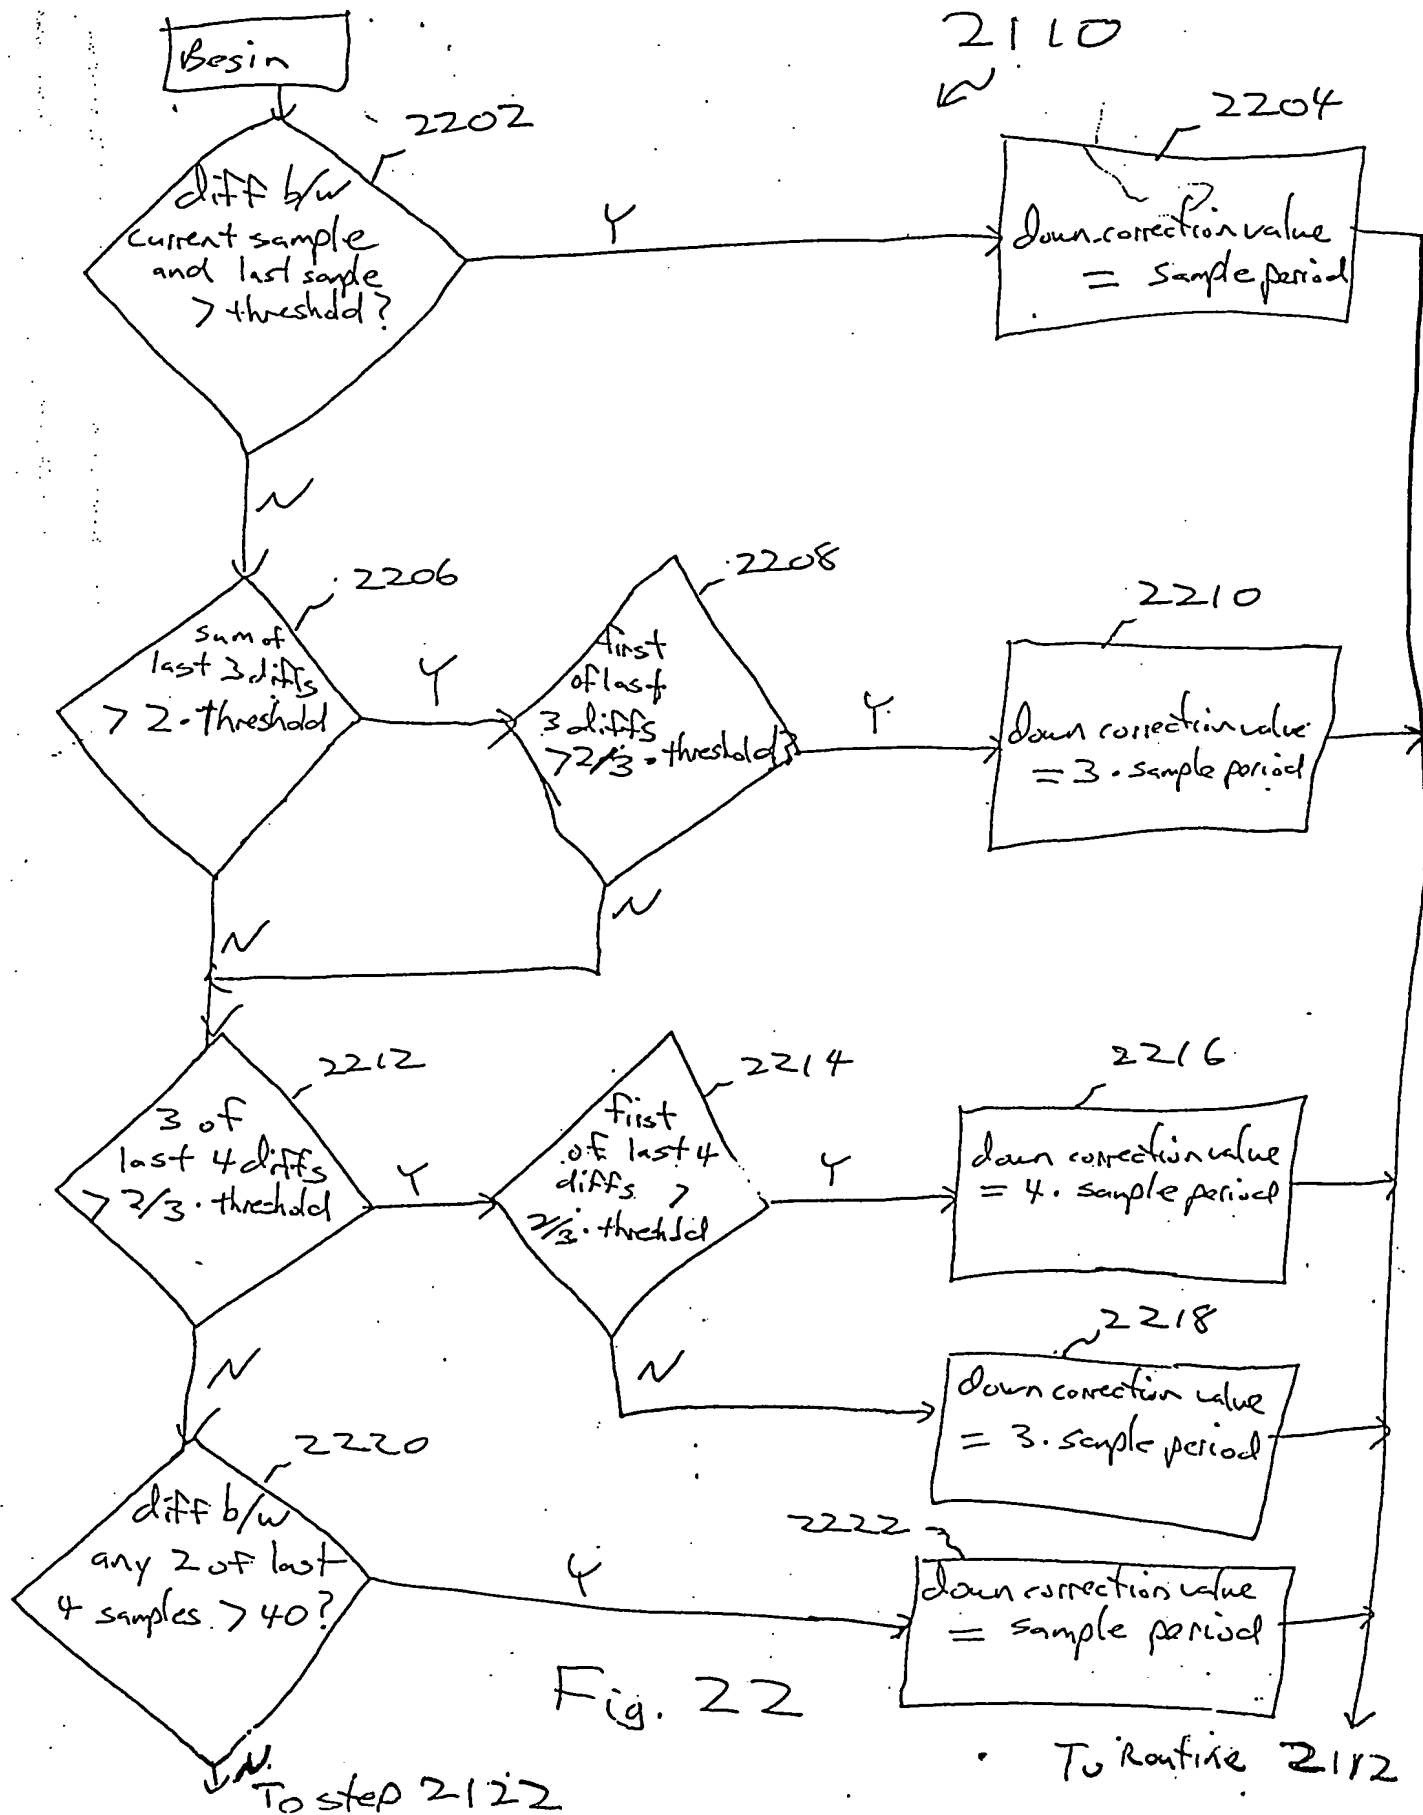 Begin
2110
2202
2204
diff b/w
current sample
and last sample
> threshold?
Y
down correction value
= sample period
N
2206
2208
2210
sum of
last 3 diffs
> 2 · threshold
Y
first
of last
3 diffs
> 2/3 · threshold?
Y
down correction value
= 3 · sample period
N
N
2212
2214
2216
3 of
last 4 diffs
> 2/3 · threshold
Y
first
of last 4
diffs >
2/3 · threshold
Y
down correction value
= 4 · sample period
N
N
2218
down correction value
= 3 · sample period
2220
diff b/w
any 2 of last
4 samples > 40?
Y
2222
down correction value
= sample period
Fig. 22
N
To step 2122
To Routine 2112